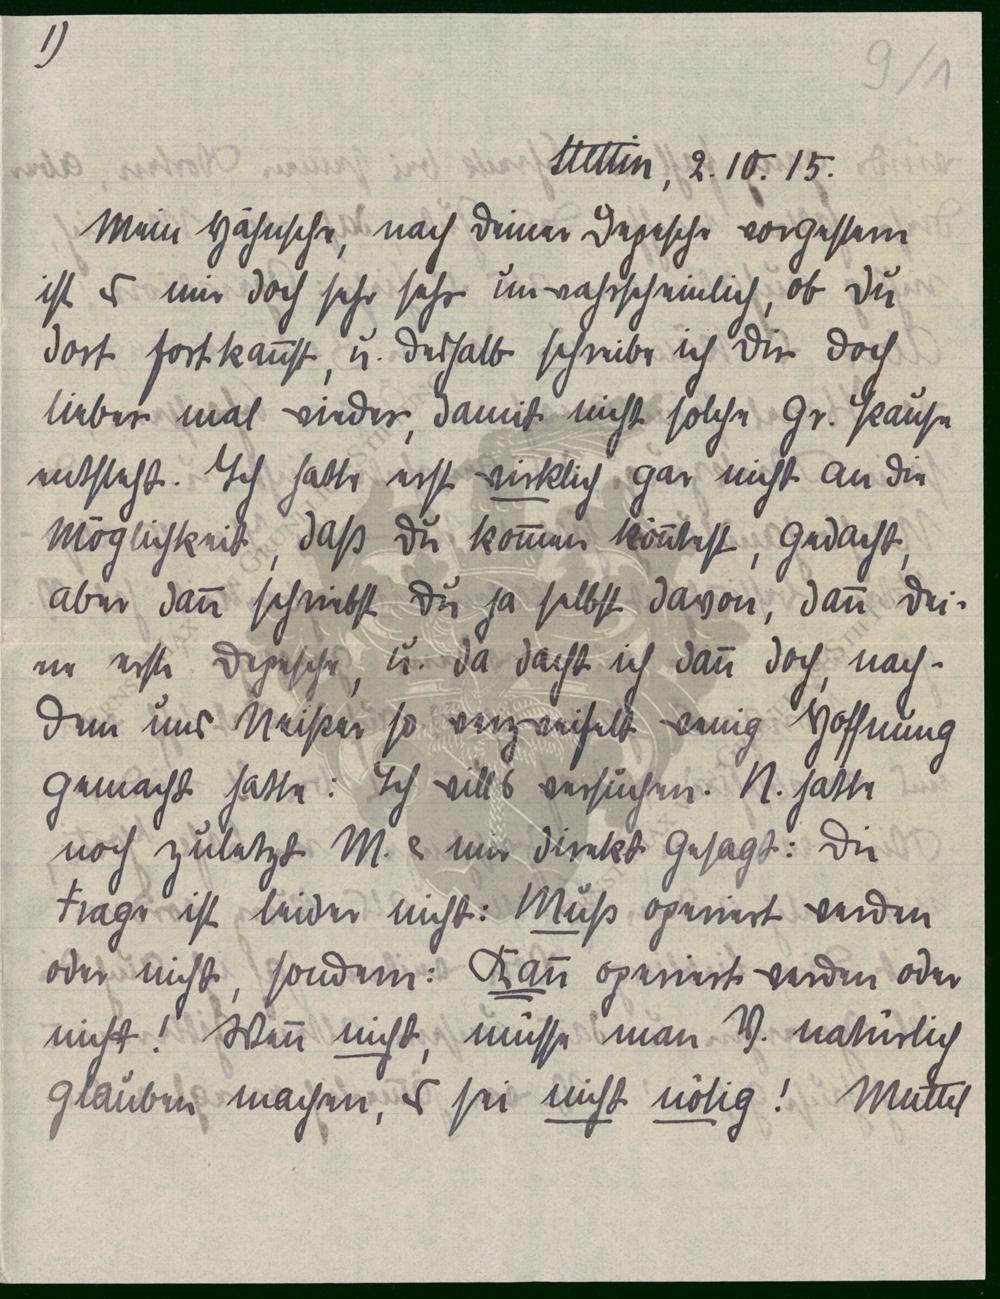 1)
9/1
Stettin, 2. 10. 15.
Mein Hähnsche, nach deiner Depesche vorgestern
ist es mir doch sehr sehr unwahrscheinlich, ob du
dort fortkannst, u. deshalb schreibe ich dir doch
lieber mal wieder, damit nicht solche gr. Pause
entsteht. Ich hatte erst wirklich gar nicht an die
Möglichkeit, daß du kom̅en kön̅test, gedacht,
aber dan̅ schriebst du ja selbst davon, dan̅ dei-
ne erste Depesche, u. da dacht ich dan̅ doch, nach-
dem uns Neißer so verzweifelt wenig Hoffnung
gemacht hatte: Ich will's versuchen. N. hatte
noch zuletzt M. & mir direkt gesagt: Die
Frage ist leider nicht: Muß operiert werden
oder nicht, sondern: Kan̅ operiert werden oder
nicht! Wen̅ nicht, müsse man V. natürlich
glauben machen, es sei nicht nötig! Muttel